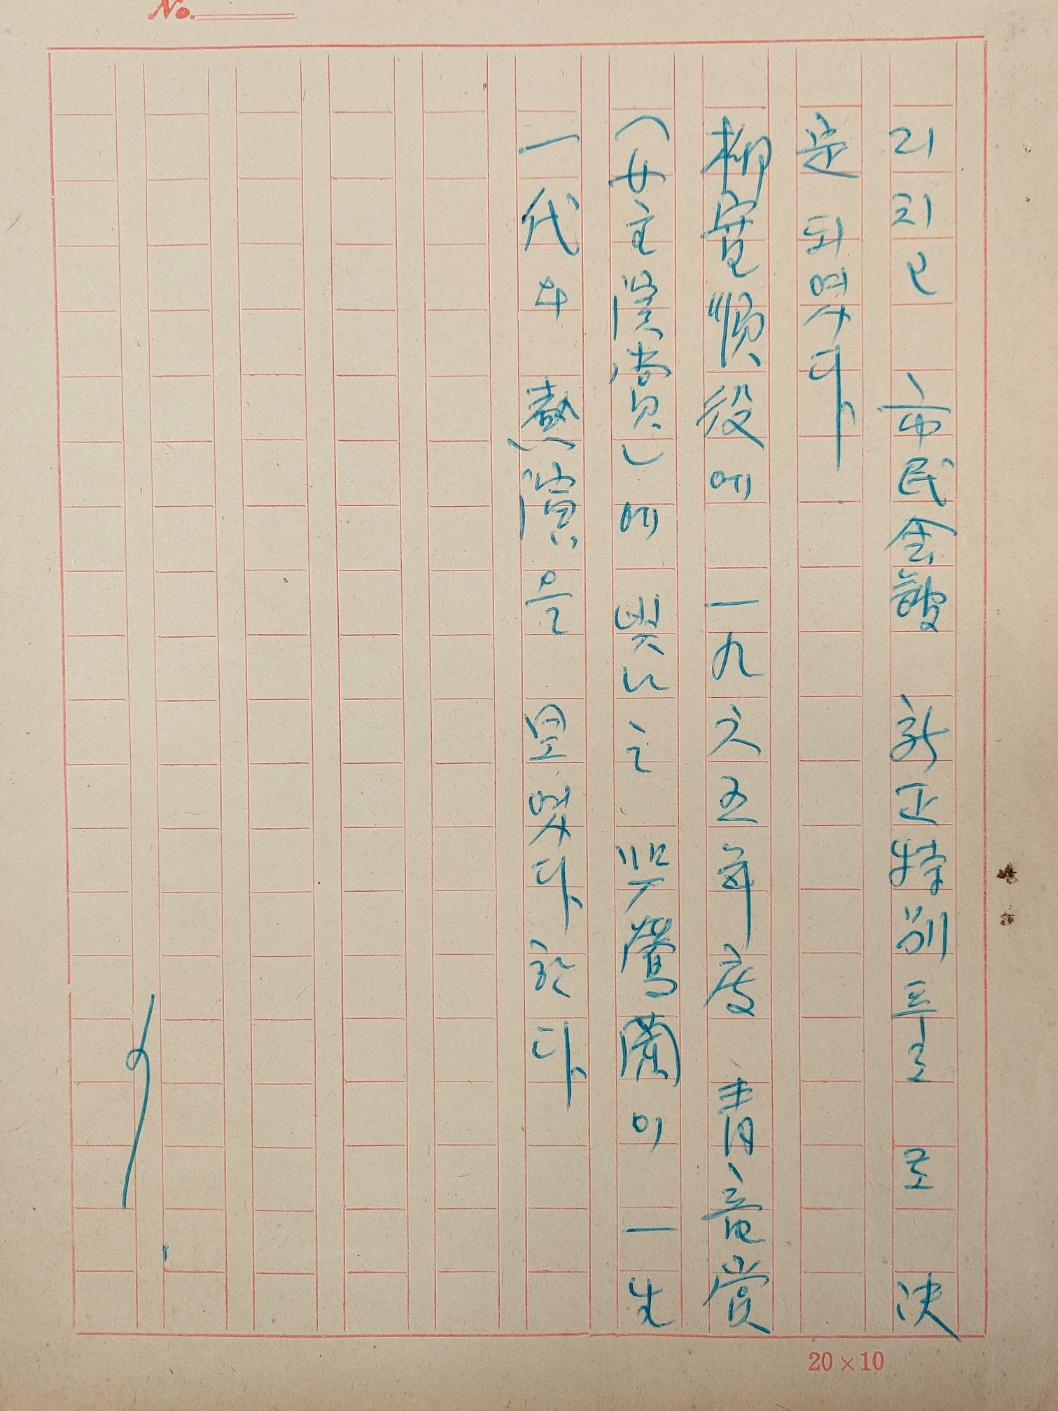 No.
市民会館 新正特別푸로 로 決
定 되였다
柳寛順役에 一九六五年度 青竜賞
(女主演賞)에 빛나는 嚴鶯蘭이 一生
一代의 熱演을 보였다 한다
20×10